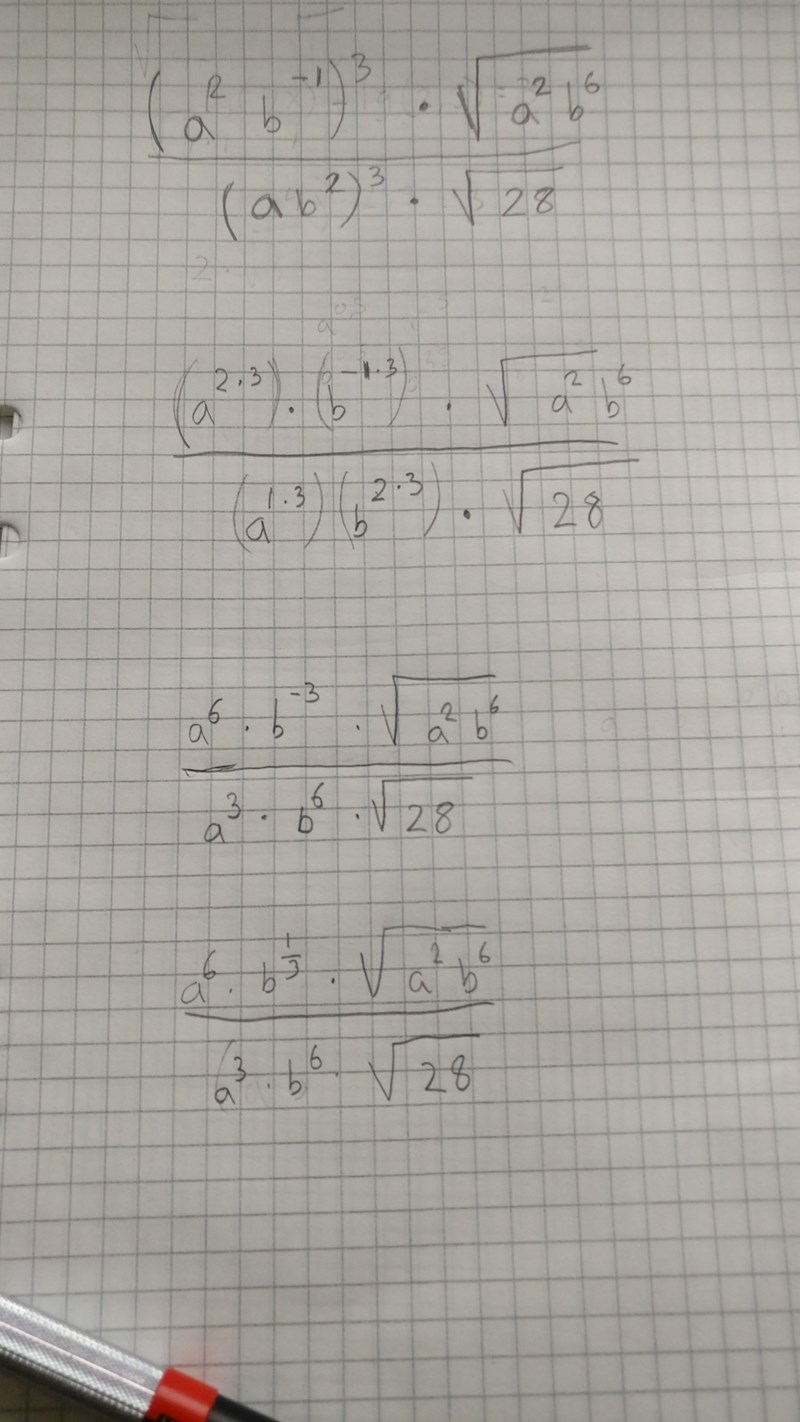 (a² b⁻¹)³ · √(a² b⁶)
(ab²)³ · √28
(a^{2·3}) · (b^{-1·3}) · √(a² b⁶)
(a^{1·3})(b^{2·3}) · √28
a⁶ · b⁻³ · √(a² b⁶)
a³ · b⁶ · √28
a⁶ · b^{1/3} · √(a² b⁶)
a³ · b⁶ · √28